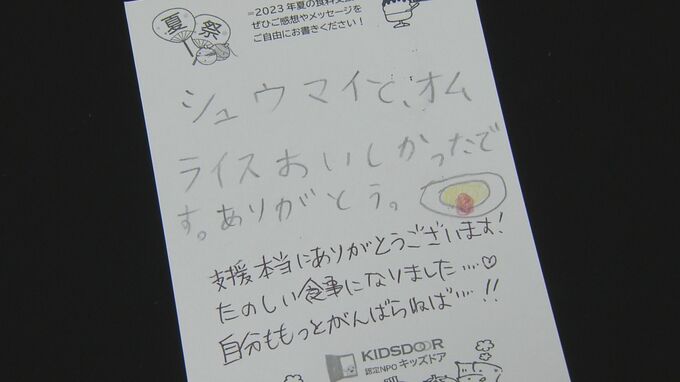 夏祭
=2023年夏の食料支
ぜひご感想やメッセージを
ご自由にお書きください!
シュウマイと、オム
ライスおいしかったで
す。ありがとう。
支援本当にありがとうございます!
たのしい食事になりました…♡
自分ももっとがんばらねば…!!
KIDSDOOR
認定NPO キッズドア